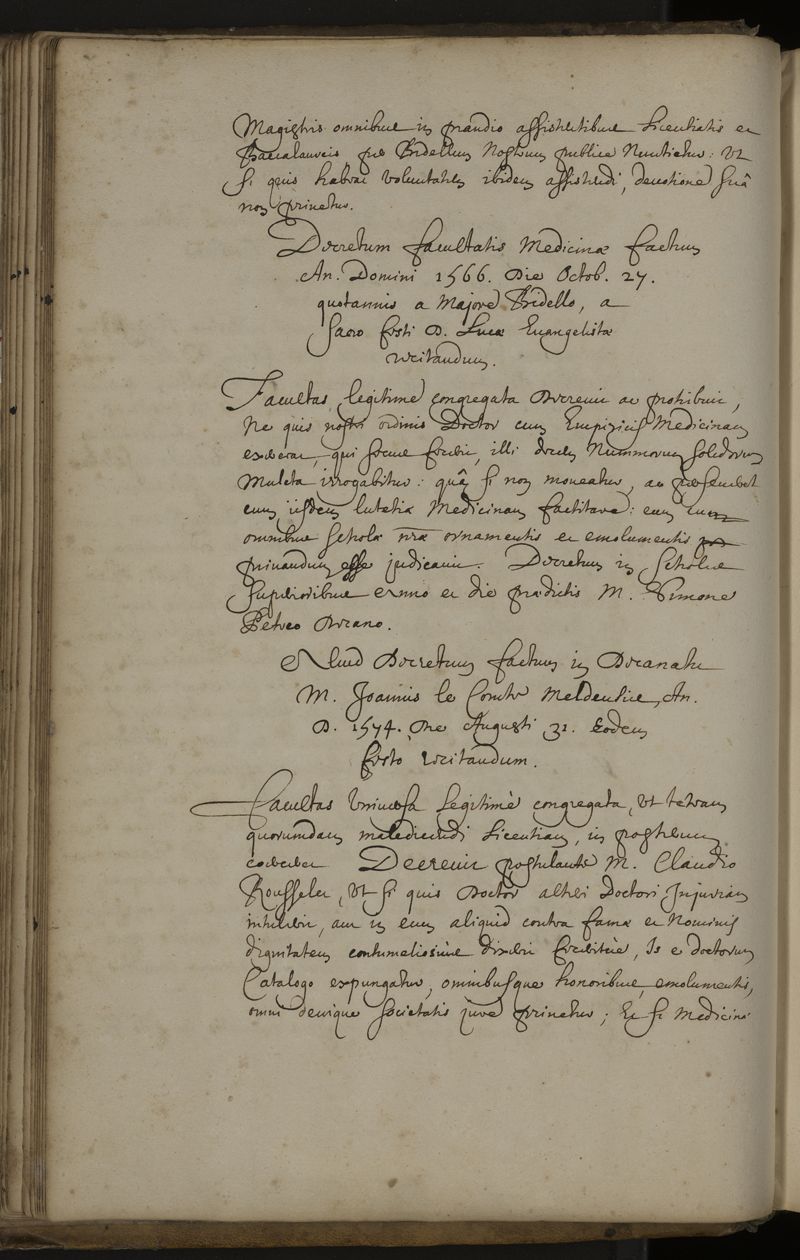 Magistris omnibus in prandio assistentibus Licentiatis et
Baccalaureis per Bidellum Nostrum publice Nuntietur: Ut
si quis habeat voluntatem ibidem assistendi, devotione suâ
non privetur.
Decretum facultatis Medicinæ factum
An. Domini 1566. Die Octob. 27.
quotannis a Majore Bidello, a
sacro festi D. Lucæ Euangelistæ
recitandum.
Facultas legitime congregata Decrevit ac prohibuit,
Ne quis nostri ordinis Doctor cum Empiricis Medicinam
exerceat, qui secus fecerit, illi decem Nummorum solidorum
Mulcta irrogabitur: quâ si non moneatur, ac perseveret
cum iisdem lutetiæ Medicinam factitare: eum
omnibus scholæ nræ ornamentis et emolumentis
privandum esse judicavit. Decretum in Scholis
superioribus anno et die prædictis M. Simone
Petreo Decano.
Aliud Decretum factum in Decanatu
M. Joannis le Comte Meldensis, An.
D. 1574. Die Augusti 31. Eodem
festo recitandum.
Facultas Universa legitimè congregata, Ut tetram
quorumdam maledicendi licentiam, in posterum
coerceret Decrevit postulante M. Claudio
Rousselet, Ut si quis Doctor alteri Doctori Injuriam
intulerit, aut in eum aliquid contra famæ et Nominis
dignitatem contumeliosius dixerit, Is e doctorum
Catalogo expungatur, omnibusque honoribus, emolumentis,
omni denique societatis jure privetur; Et si Medicinæ